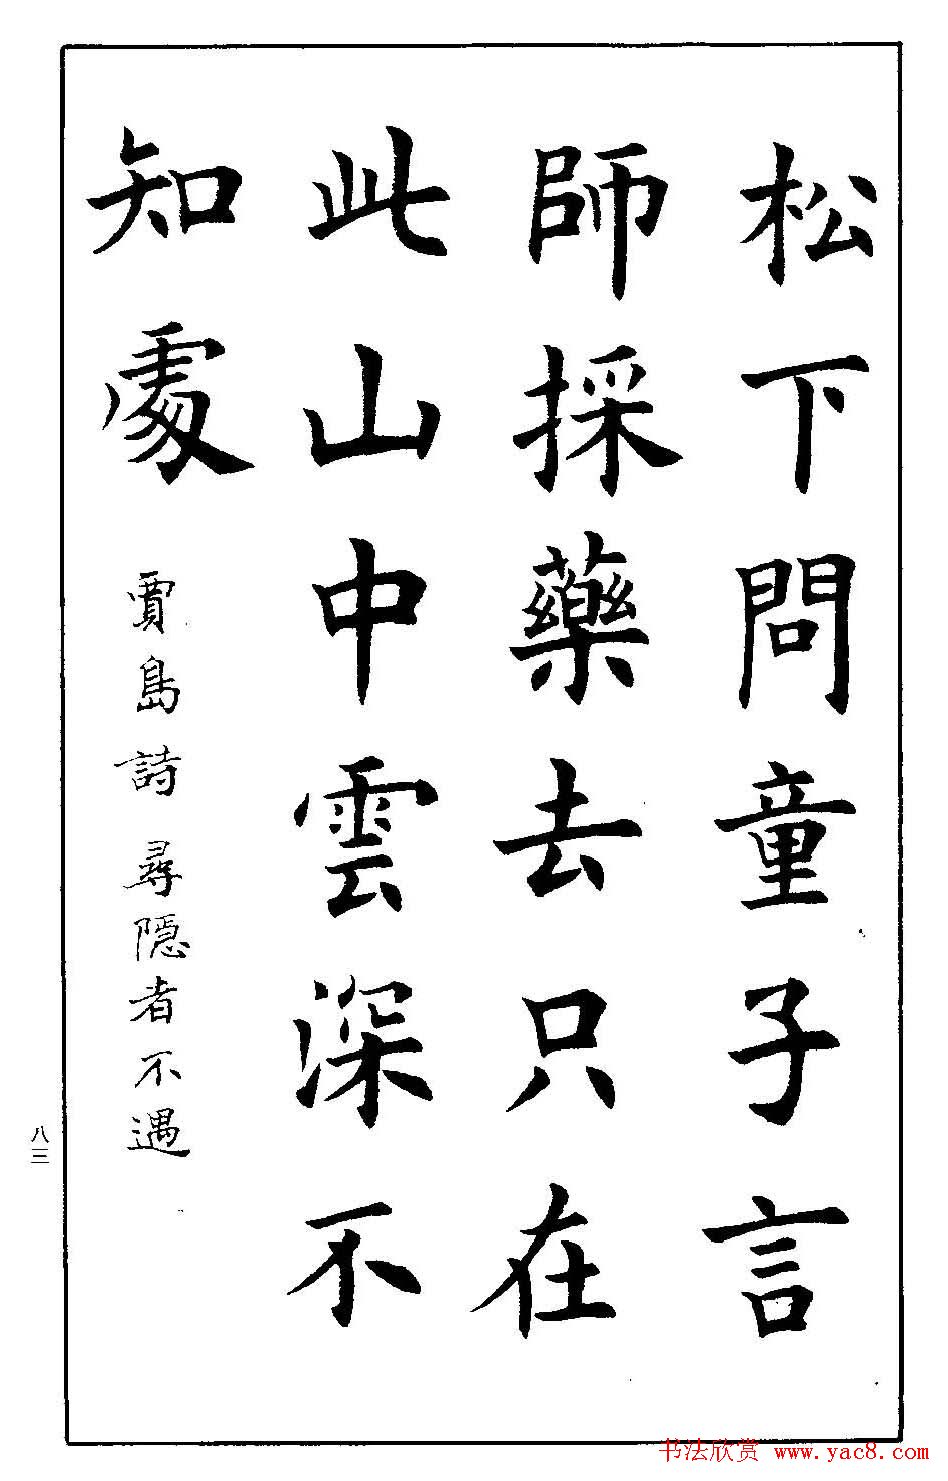 松下問童子言
師採藥去只在
此山中雲深不
知處
賈島詩 尋隱者不遇
八三
书法欣赏 www.yac8.com